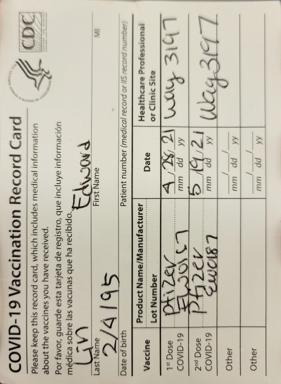 COVID-19 Vaccination Record Card
CDC
Please keep this record card, which includes medical information
about the vaccines you have received.
Por favor, guarde esta tarjeta de registro, que incluye información
médica sobre las vacunas que ha recibido.
Edward
Last Name First Name MI
2/4/95
Date of birth Patient number (medical record or IIS record number)
Vaccine Product Name/Manufacturer Date Healthcare Professional
Lot Number or Clinic Site
1st Dose Pfizer 4/28/21 3197
COVID-19 mm dd yy
2nd Dose Pfizer 5/19/21 3197
COVID-19 mm dd yy
Other / /
mm dd yy
Other / /
mm dd yy